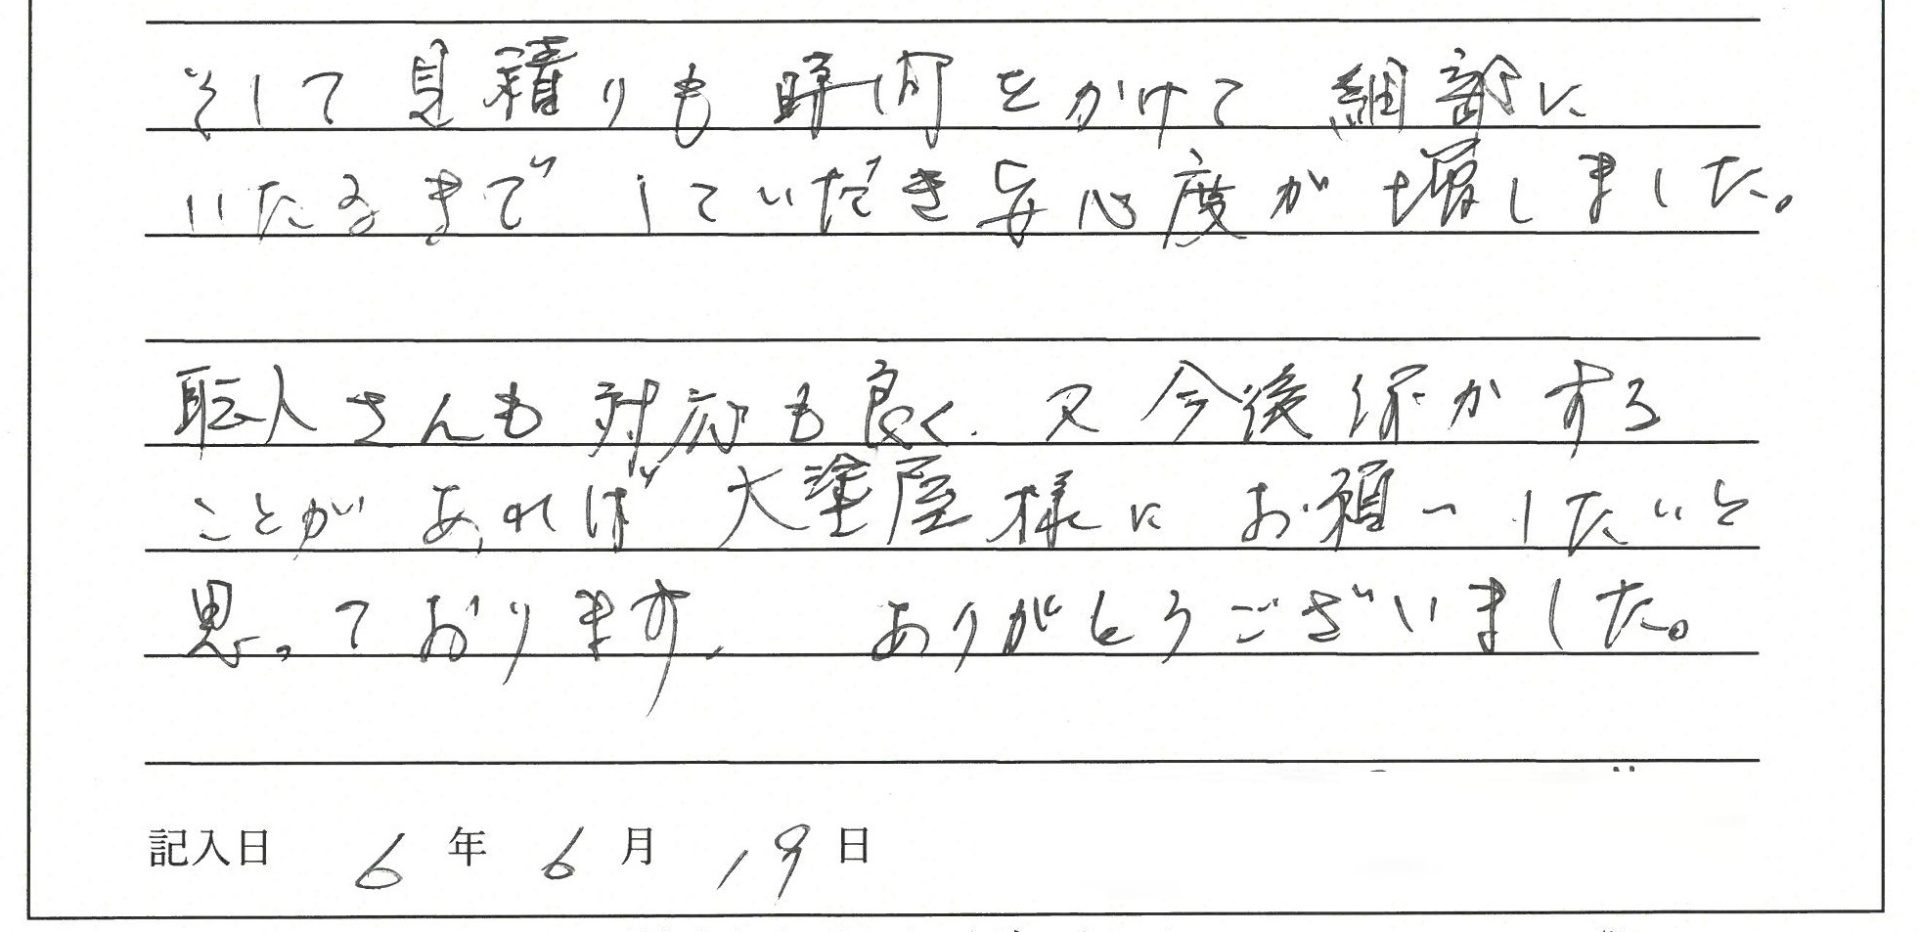 そして見積りも時間をかけて細部に
いたるまでしていただき安心度が増しました。
職人さんも対応も良く、又今後何かする
ことがあれば大塗屋様にお願いしたいと
思っております、ありがとうございました。
記入日 6年 6月 19日